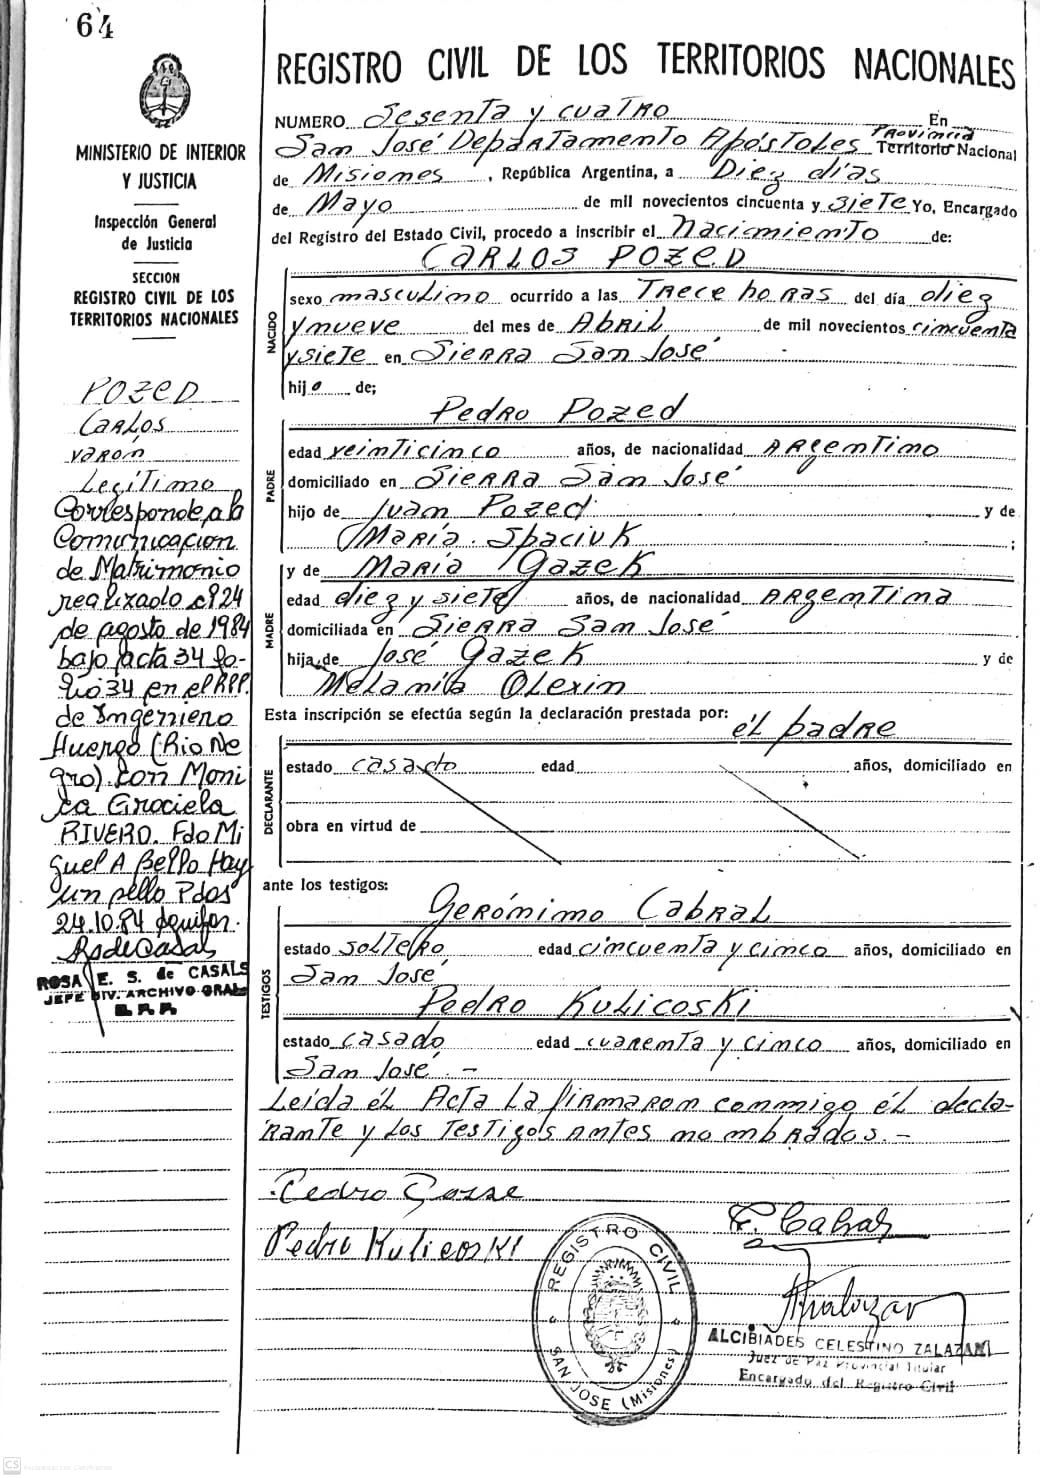 64
MINISTERIO DE INTERIOR
Y JUSTICIA
Inspección General
de Justicia
SECCION
REGISTRO CIVIL DE LOS
TERRITORIOS NACIONALES
POZED
CARLOS
varón
Legítimo
Corresponde a la
Comunicacion
de Matrimonio
realizado el 24
de agosto de 1984
bajo acta 34 fo-
lio 34 en el RPP.
de Ingeniero
Huergo (Rio Ne
gro). con Moni
ca Graciela
RIVERO. Fdo Mi
guel A Bello Hay
un sello Pdos
24.10.84
ROSA E. S. de CASALS
JEFE DIV. ARCHIVO GRAL
R. P. P.
REGISTRO CIVIL DE LOS TERRITORIOS NACIONALES
NUMERO Sesenta y cuatro En
San José Departamento Apóstoles Provincia Territorio Nacional
de Misiones , República Argentina, a Diez días
de Mayo de mil novecientos cincuenta y siete Yo, Encargado
del Registro del Estado Civil, procedo a inscribir el nacimiento de:
CARLOS POZED
NACIDO
sexo masculino ocurrido a las Trece horas del día diez
y nueve del mes de Abril de mil novecientos cincuenta
y siete en Sierra San José
hijo de;
Pedro Pozed
PADRE
edad veinticinco años, de nacionalidad Argentino
domiciliado en Sierra San José
hijo de Juan Pozed y de
María Spaciuk ;
y de María Gazek
MADRE
edad diez y siete años, de nacionalidad Argentina
domiciliada en Sierra San José
hija de José Gazek y de
Melanita Olexin
Esta inscripción se efectúa según la declaración prestada por: él padre
DECLARANTE
estado casado edad años, domiciliado en
obra en virtud de
ante los testigos:
Gerónimo Cabral
TESTIGOS
estado soltero edad cincuenta y cinco años, domiciliado en
San José
Pedro Kulicoski
estado casado edad cuarenta y cinco años, domiciliado en
San José. -
Leída él Acta la firmaron conmigo él decla-
rante y los testigos antes nombrados. -
Pedro
G. Cabral
Pedro Kulicoski
REGISTRO CIVIL
SAN JOSE (Misiones)
ALCIBIADES CELESTINO ZALAZAR
Juez de Paz Provincial Titular
Encargado del Registro Civil
CS